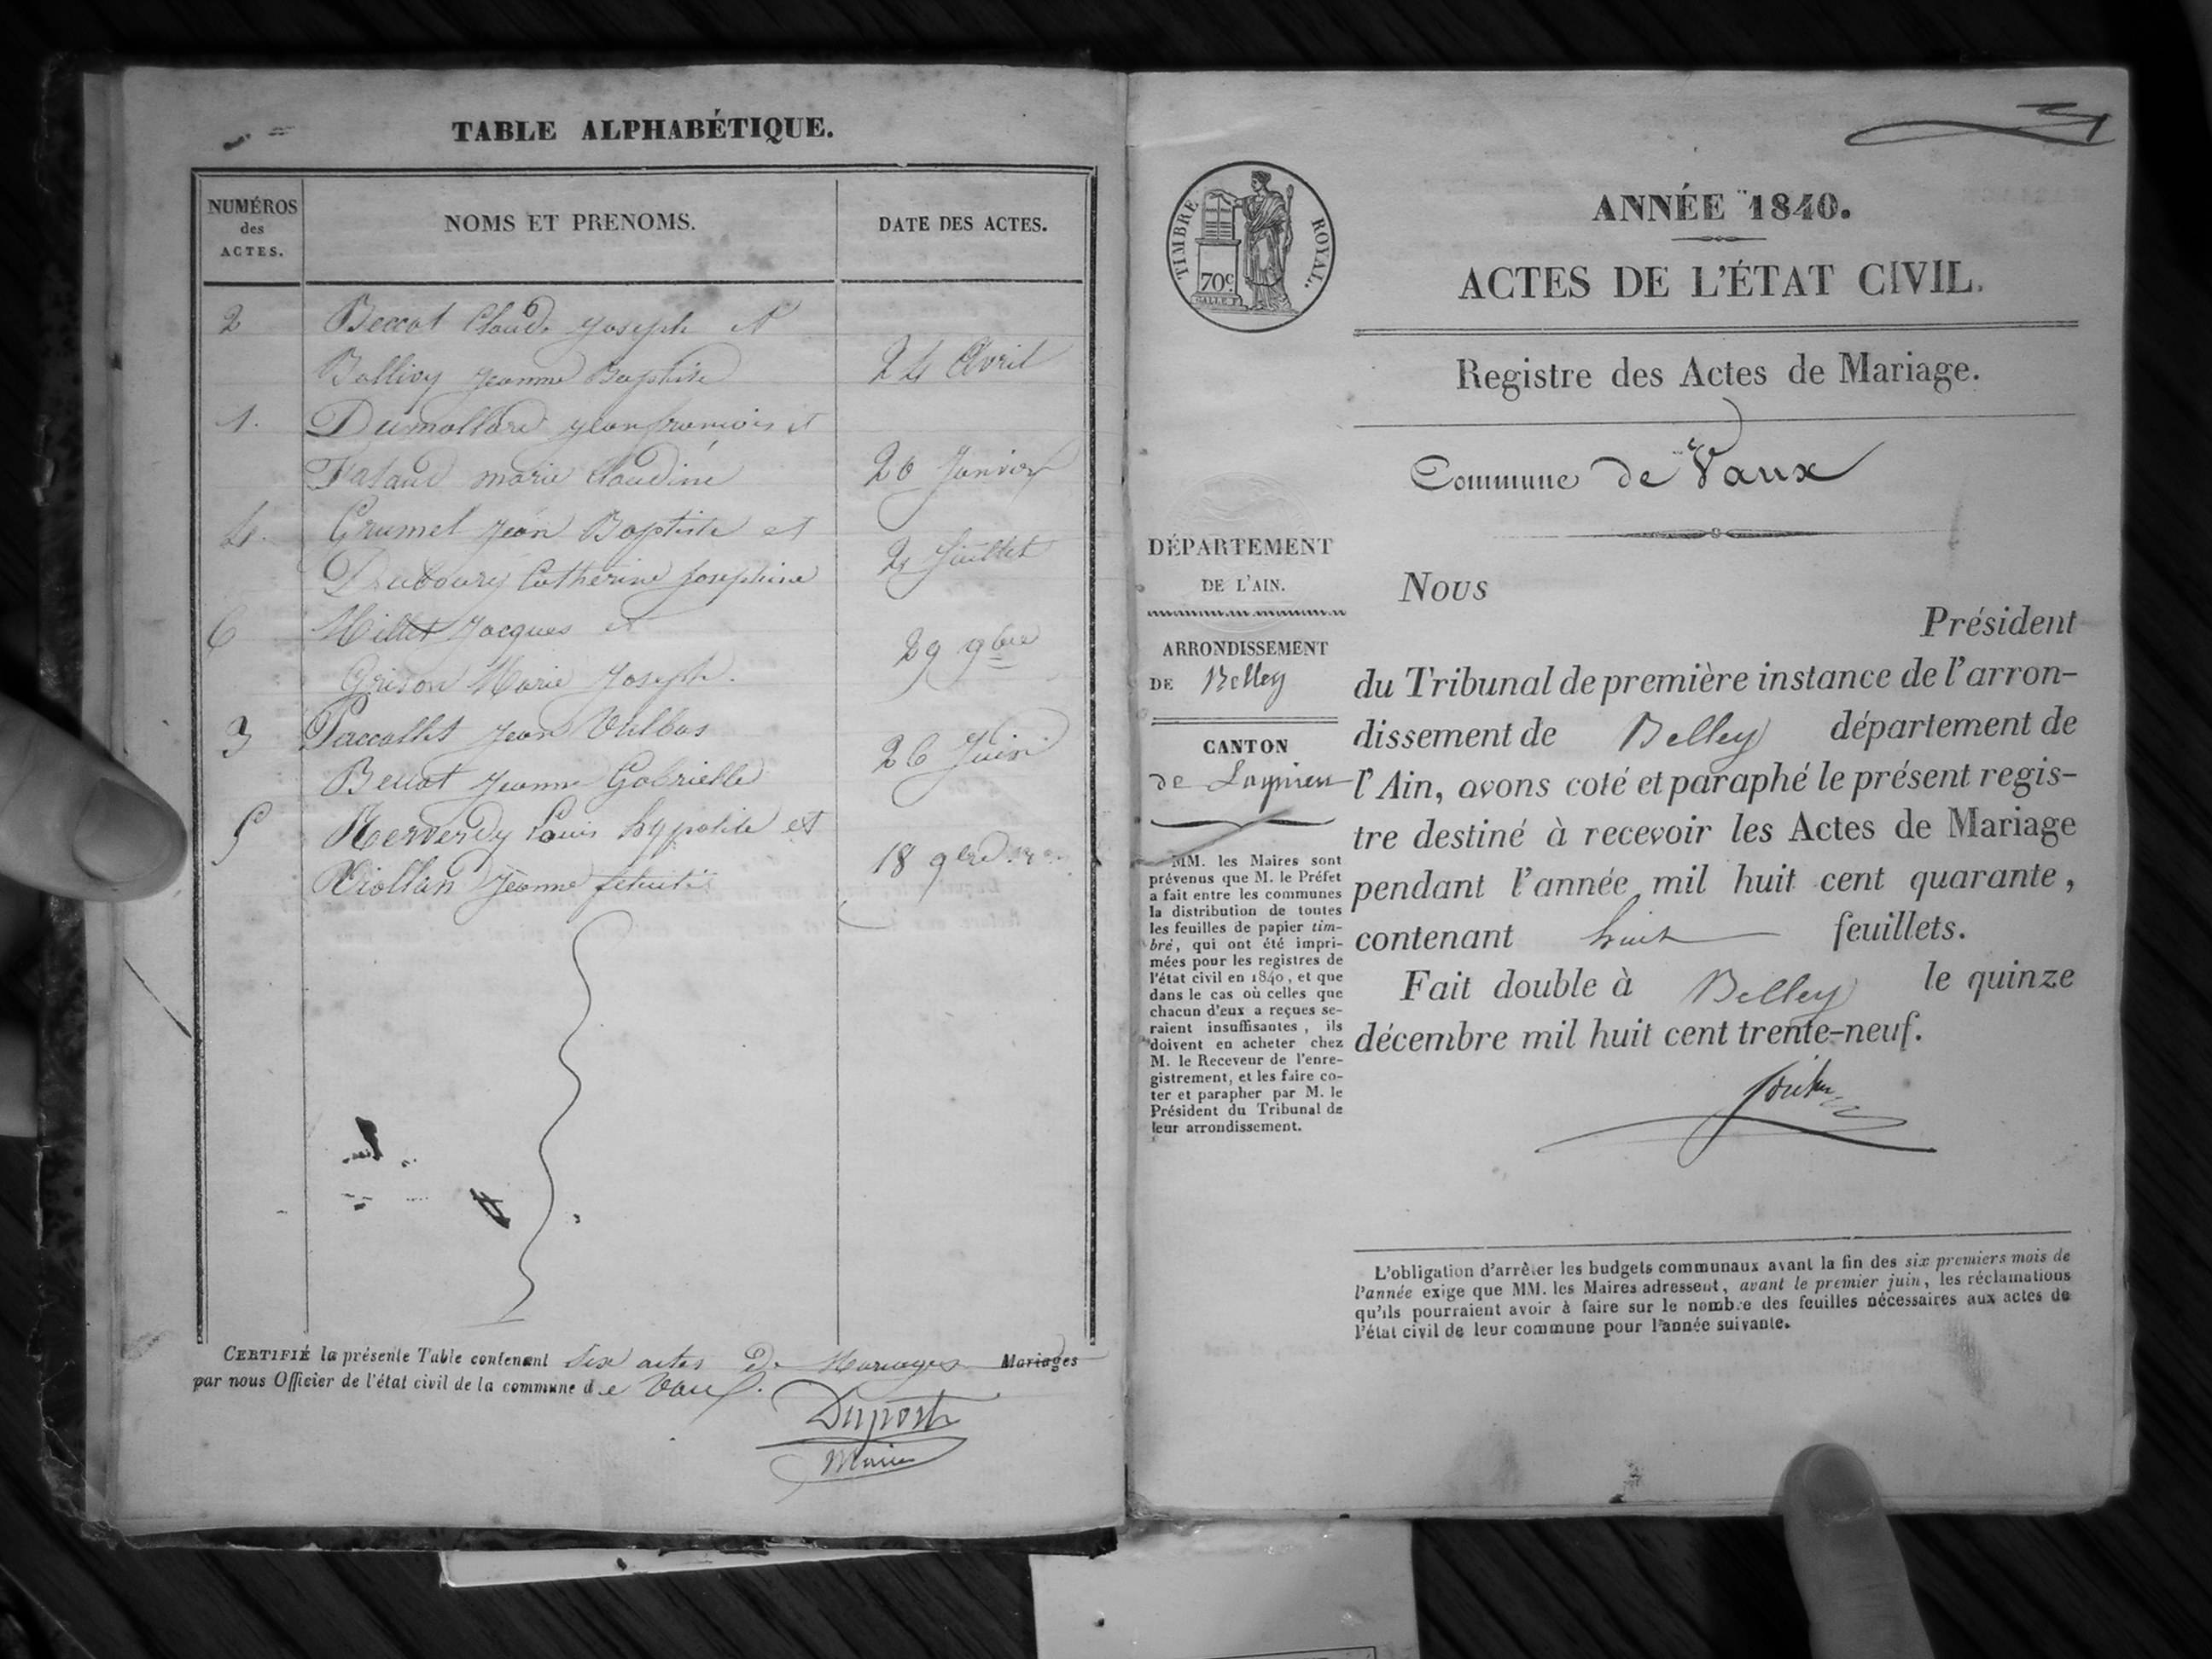 TABLE ALPHABÉTIQUE.
NUMÉROS
des
ACTES.
NOMS ET PRENOMS.
DATE DES ACTES.
2 Beccat Claude Joseph et
Ballivy Jeanne Baptiste 24 Avril
1. Dumollard Jean françois et
marie Claudine 20 Janvier
4. Grumel Jean Baptiste et
Catherine Josephine 2 Juillet
6 Millet Jacques et
Grison Marie Joseph. 29 9bre
3 Paccallet Jean Vulbas
Jeanne Gabrielle 26 Juin
5 Louis hypolite et
Jeanne 18 9bre
CERTIFIÉ la présente Table contenant Six actes De Mariages Mariages
par nous Officier de l'état civil de la commune de Vaux.
Duport
Maire
TIMBRE ROYAL.
70c.
ANNÉE 1840.
ACTES DE L'ÉTAT CIVIL.
Registre des Actes de Mariage.
Commune de Vaux
DÉPARTEMENT
DE L'AIN.
ARRONDISSEMENT
DE Belley
CANTON
de Lagnieu
MM. les Maires sont
prévenus que M. le Préfet
a fait entre les communes
la distribution de toutes
les feuilles de papier tim-
bré, qui ont été impri-
mées pour les registres de
l'état civil en 1840, et que
dans le cas où celles que
chacun d'eux a reçues se-
raient insuffisantes, ils
doivent en acheter chez
M. le Receveur de l'enre-
gistrement, et les faire co-
ter et parapher par M. le
Président du Tribunal de
leur arrondissement.
Nous
Président
du Tribunal de première instance de l'arron-
dissement de Belley département de
l'Ain, avons coté et paraphé le présent regis-
tre destiné à recevoir les Actes de Mariage
pendant l'année mil huit cent quarante,
contenant huit feuillets.
Fait double à Belley le quinze
décembre mil huit cent trente-neuf.
L'obligation d'arrêter les budgets communaux avant la fin des six premiers mois de
l'année exige que MM. les Maires adressent, avant le premier juin, les réclamations
qu'ils pourraient avoir à faire sur le nombre des feuilles nécessaires aux actes de
l'état civil de leur commune pour l'année suivante.